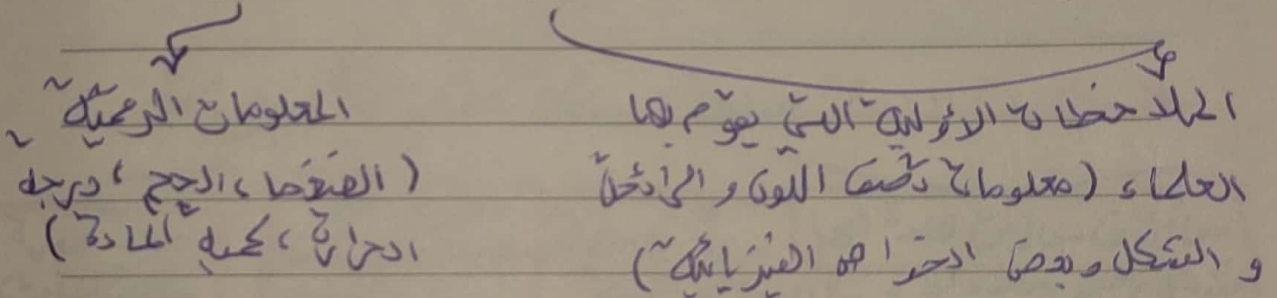 الملاحظات الأولية التي يقوم بها
العلماء (معلومات تصف اللون والرائحة
و الشكل وبعض الخواص الفيزيائية)
المعلومات الرقمية
(الضغط، الحجم، درجة
الحرارة، كمية المادة)